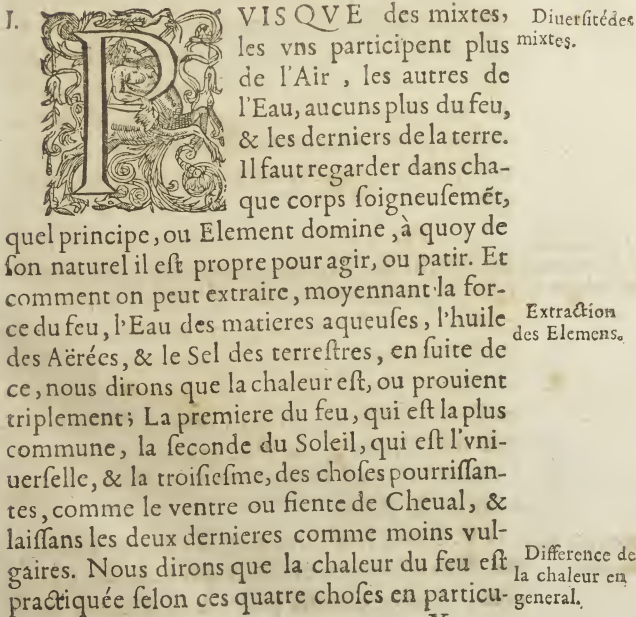 I.
PVISQVE des mixtes,
les vns participent plus
de l'Air , les autres de
l'Eau, aucuns plus du feu,
& les derniers de la terre.
Il faut regarder dans cha-
que corps ſoigneuſemēt,
quel principe, ou Element domine , à quoy de
ſon naturel il eſt propre pour agir, ou patir. Et
comment on peut extraire, moyennant la for-
ce du feu, l'Eau des matieres aqueuſes, l'huile
des Aërées, & le Sel des terreſtres, en ſuite de
ce, nous dirons que la chaleur eſt, ou prouient
triplement; La premiere du feu, qui eſt la plus
commune, la ſeconde du Soleil, qui eſt l'vni-
uerſelle, & la troiſieſme, des choſes pourriſſan-
tes, comme le ventre ou fiente de Cheual, &
laiſſans les deux dernieres comme moins vul-
gaires. Nous dirons que la chaleur du feu eſt
practiquée ſelon ces quatre choſes en particu-
Diuerſité des
mixtes.
Extraction
des Elemens.
Difference de
la chaleur en
general.